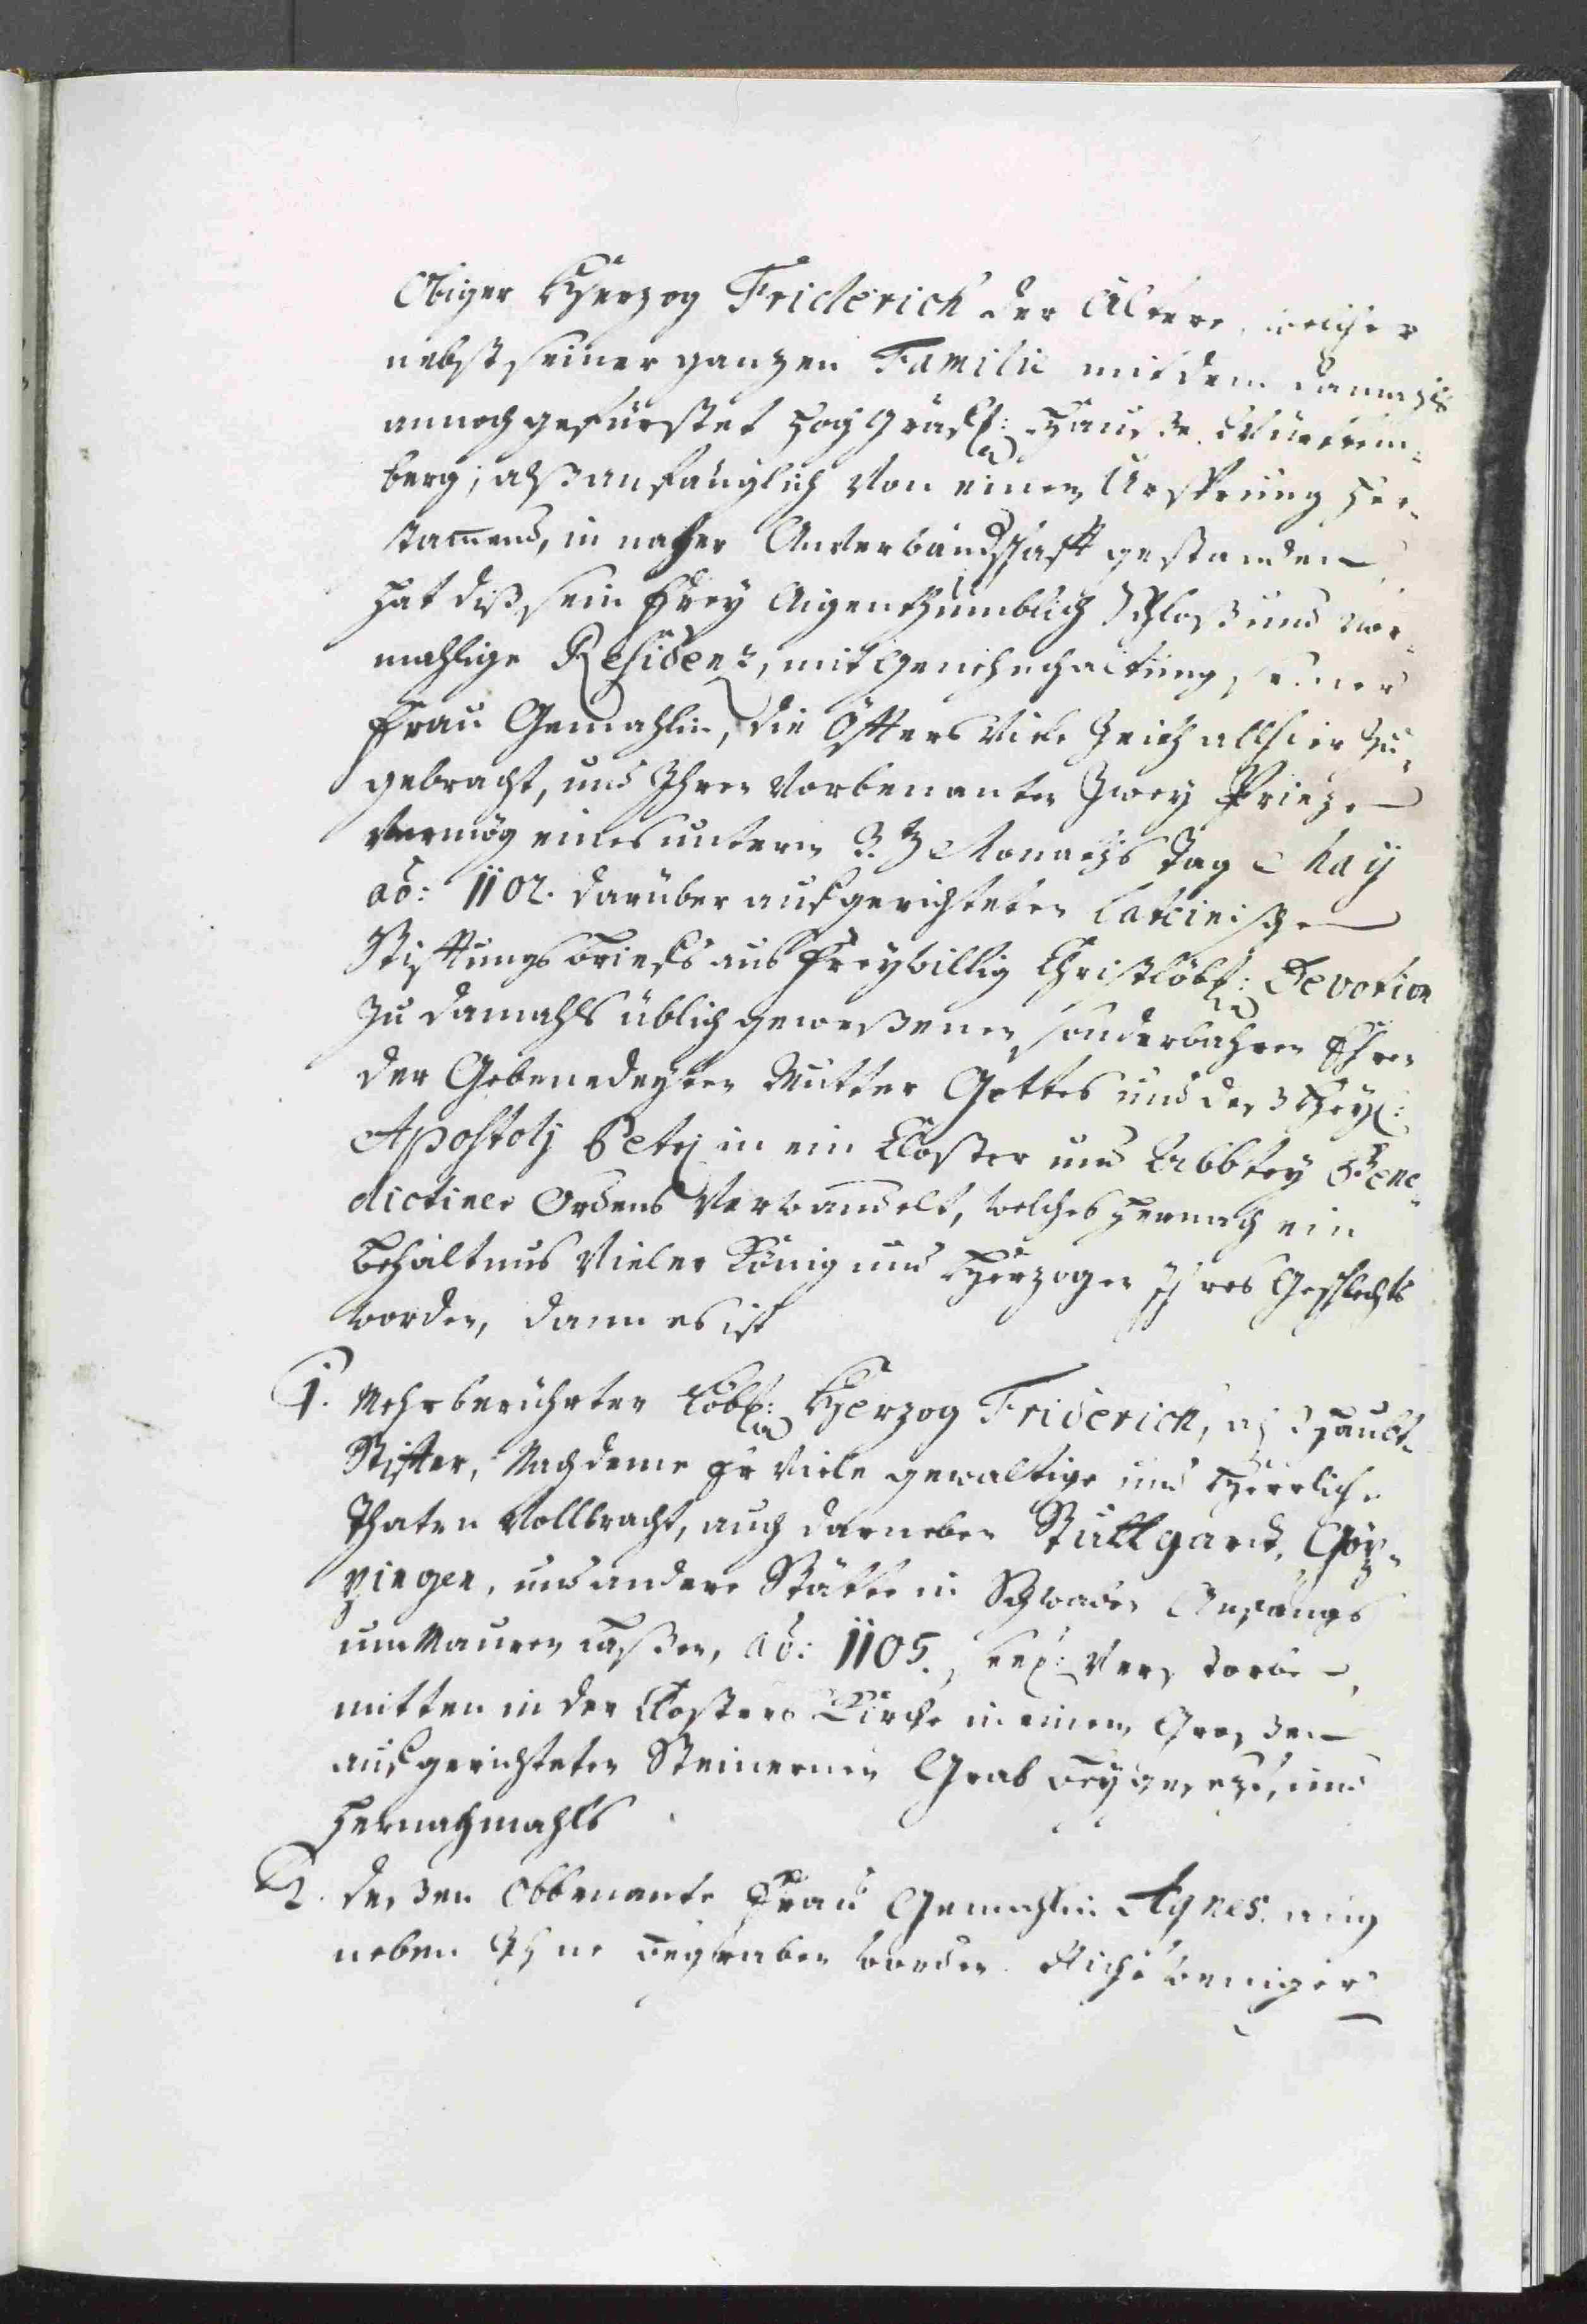 Obiger Herzog Friderich der Ältere, welcher
nebst seiner ganzen Familie mit dem damahls
annoch gefürstet Hoch Gräfl: Hauße Würtem-
berg, alß anfänglich von einem Ursprung her-
stamend, in naher Anverbandschafft gestanden
hat diß sein Frey Aigenthumblich Schloß und vor-
mahlige Residenz, mit Genehmhaltung seiner
Frau Gemahlin, die öffters viele Zeith allhier zu-
gebracht, und Ihren vorbenanten Zwey Prinzen
vermög eines unterm 3. Monaths Tag Maÿ
aõ: 1102. darüber aufgerichteten Lateinischen
Stifftungs Briefs aus freywillig Christlöbl: Devotion
zu damahls üblich geweßenen sonderbahren Ehren
der Gebenedeyten Mutter Gottes und deß Heyl:
Apostolj Petrj in ein Closter und Abbtey Bene-
dictiner Ordens verwandelt, welches hernach ein
Behältnus vieler König und Herzogen Ihres Geschlechts
worden, dann es ist
1. Mehrberührter Löbl: Herzog Friderich, alß Haubt-
Stiffter, Nachdeme Er viele gewaltige und Herrliche
Thaten vollbracht, auch darneben Stuttgard, Göp-
pingen, und andere Stätte in Schwaben Anfangs
um Mauren laßen, aõ: 1105. seel: verstorben,
mitten in der Closters Kirche in einem Großen
aufgerichteten Steinernen Grab beygesezt, und
hernachmahls
2. deßen obbenante Frau Gemahlin Agnes. auch
neben Ihne begraben worden. Nicht weniger